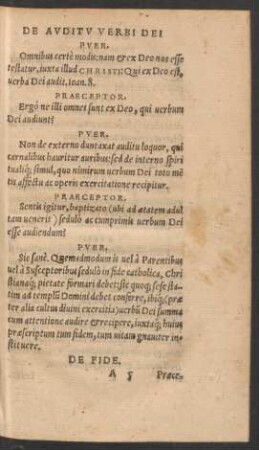 DE AVDITV VERBI DEI
PVER.
Omnibus certè modis: nam & ex Deo nos esse
testatur, iuxta illud CHRISTI: Qui ex Deo est,
uerba Dei audit. Ioan. 8.
PRAECEPTOR.
Ergó ne illi omnes sunt ex Deo, qui uerbum
Dei audiunt?
PVER.
Non de externo duntaxat auditu loquor, qui
carnalibus hauritur auribus: sed de interno spiri
tualiq́; simul, quo nimirum uerbum Dei toto mē
tis affectu ac operis exercitatione recipitur.
PRAECEPTOR.
Sentis igitur, baptizato (ubi ad ætatem adul
tam uenerit) sedulò ac cumprimis uerbum Dei
esse audiendum?
PVER.
Sic sanè. Quemadmodum is uel à Parentibus
uel à Susceptoribus sedulò in fide catholica, Chri
stianaq́; pietate formari debet: sic quoq; sese sta-
tim ad templū Domini debet conferre, ibiq́; (præ
ter alia cultus diuini exercitia) uerbū Dei summa
cum attentione audire & recipere, iuxtaq́; huius
præscriptum tum fidem, tum uitam gnauiter in-
stituere.
DE FIDE.
A 5 Præce-